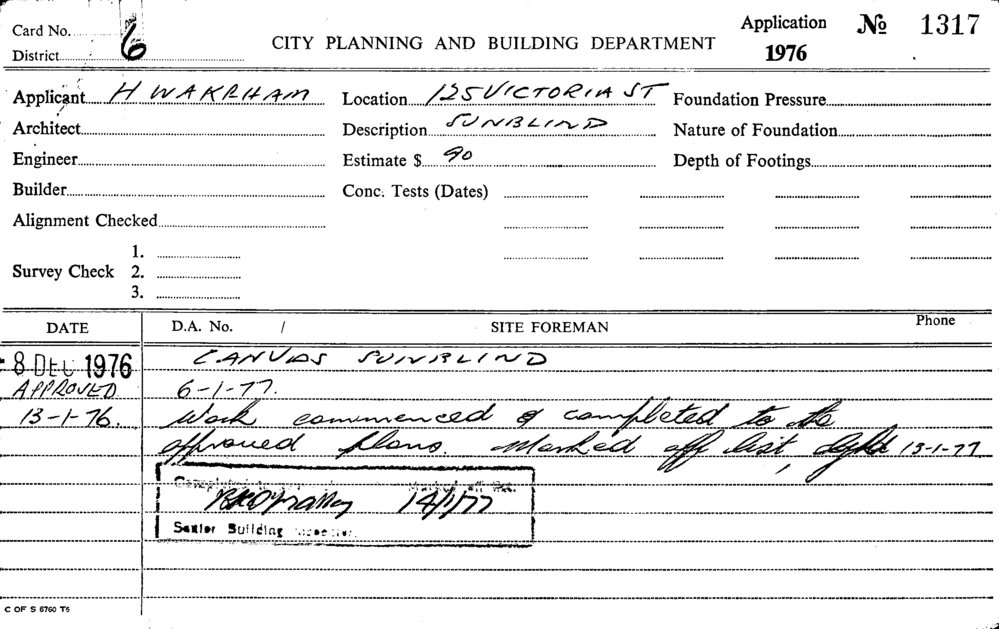 Card No.
District 6
CITY PLANNING AND BUILDING DEPARTMENT
Application No 1317
1976
Applicant H WAKEHAM Location 125 VICTORIA ST Foundation Pressure
Architect Description SUNBLIND Nature of Foundation
Engineer Estimate $ 90 Depth of Footings
Builder Conc. Tests (Dates)
Alignment Checked
1.
Survey Check 2.
3.
DATE D.A. No. / SITE FOREMAN Phone
8 DEC 1976 CANVAS SUNBLIND
APPROVED 6-1-77.
13-1-76. Work commenced & completed to the
approved plans. Marked off list, 13-1-77
Completed to Marked off list.
14/1/77
Senior Building Inspector.
C OF S 6760 T5